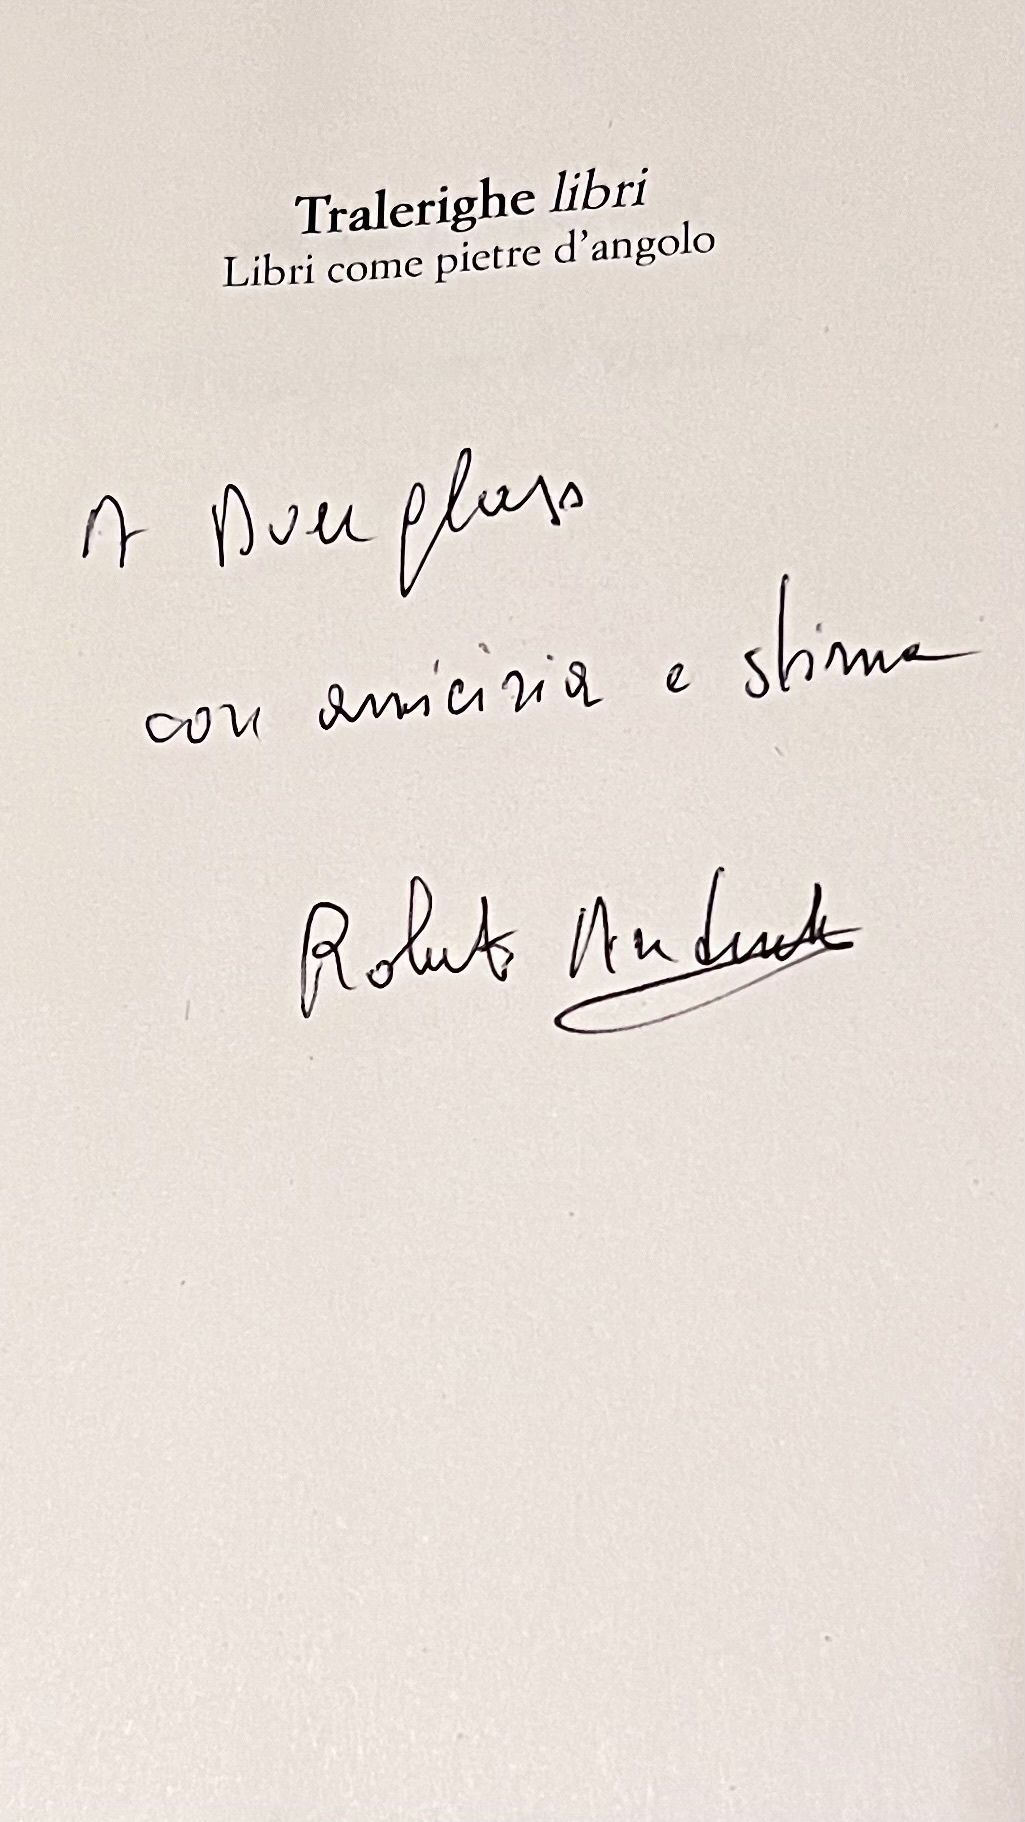 Tralerighe libri
Libri come pietre d'angolo
A Douglass
con amicizia e stima
Roberto